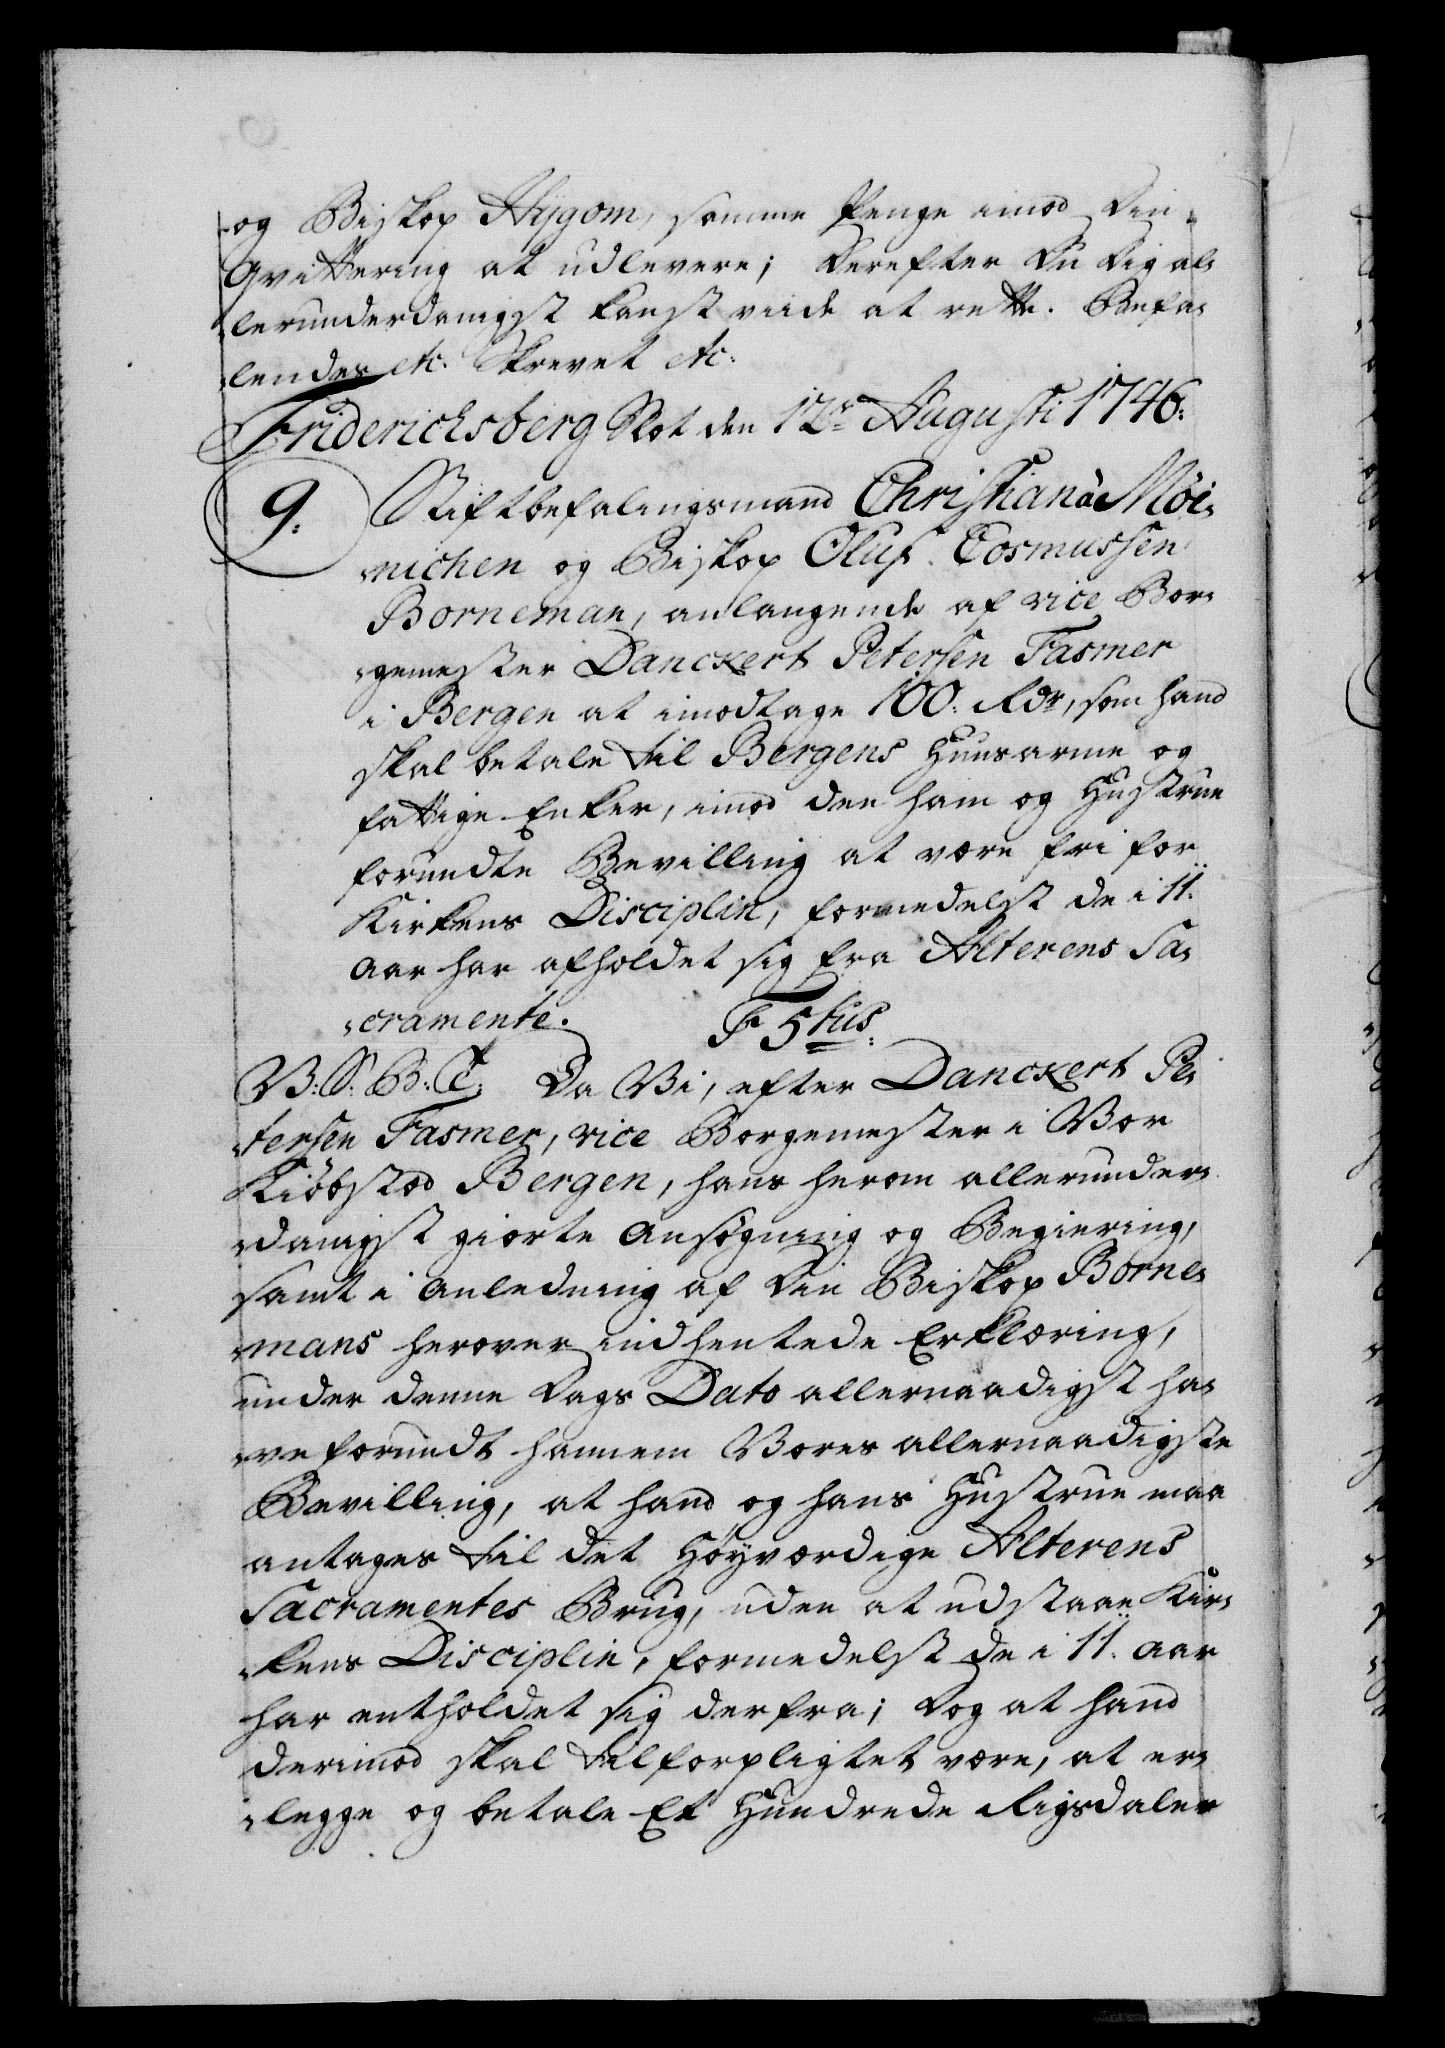 og Biskop Hygom, samme Penge imod Din
Qvittering at udlevere; Derefter Du dig al-
lerunderdanigst kanst viide at rette. Befa-
lendes etc. Skrevet etc.
Friderichsberg Slot den 12te Augusti 1746.
9. Stiftbefalingsmand Christian à Möi-
nichen og Biskop Oluf Cosmussen
Borneman, anlangende af vice Bor-
gemester Danckert Petersen Fasmer
i Bergen at imodtage 100. Rdr, som hand
skal betale til Bergens Huusarme og
fattige Enker, imod den ham og Hustrue
forundte Bevilling at være fri for
Kirkens Disciplin, formedelst de i 11.
Aar har afholdet sig fra Alterens Sa-
cramente.
F 5tus.
V: S: B: T: Da Vi, efter Danckert Pe-
tersen Fasmer, vice Borgemester i Vor
Kiöbstæd Bergen, hans herom allerunder-
danigst giorte Ansögning og Begiering,
samt i Anledning af Din Biskop Borne-
mans herover indhentede Erklæring,
under denne Dags Dato allernaadigst ha-
ve forundt hannem Vores allernaadigste
Bevilling, at hand og hans Hustrue maa
antages til det Höyværdige Alterens
Sacramentes Brug, uden at udstaae Kir-
kens Disciplin, formedelst de i 11. Aar
har entholdet sig derfra; Dog at hand
derimod skal tilforpligtet være, at er-
legge og betale Et Hundrede Rigsdaler